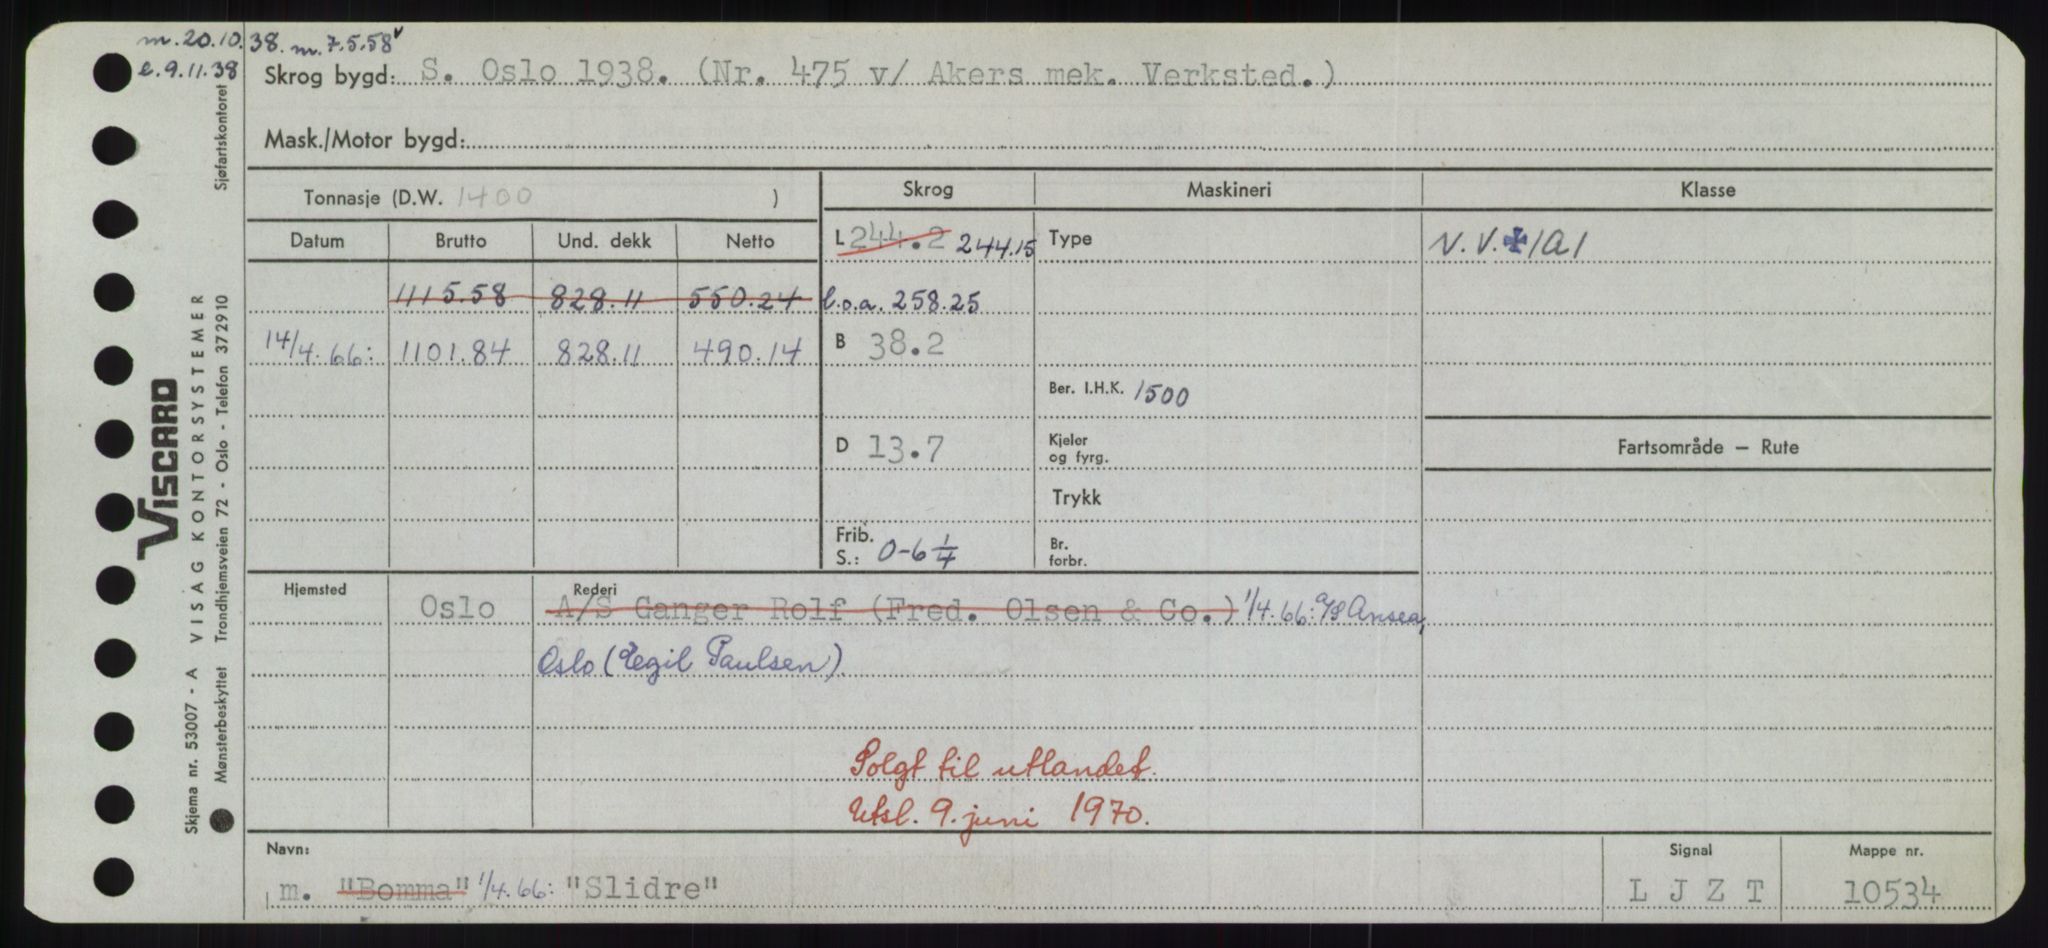 m. 20.10.38. m. 7.5.58 v
e. 9.11.38
Skrog bygd: S. Oslo 1938. (Nr. 475 v/ Akers mek. Verksted.)
Mask./Motor bygd:
Tonnasje (D.W. 1400 )
Skrog
Maskineri
Klasse
Datum Brutto Und. dekk Netto
L 244.2 244.15
Type
N.V. ✠ 1A1
1115.58 828.11 550.24
l.o.a. 258.25
14/4.66: 1101.84 828.11 490.14
B 38.2
Ber. I.H.K. 1500
D 13.7
Kjeler
og fyrg.
Fartsområde — Rute
Trykk
Frib.
S.: 0-6 1/4
Br.
forbr.
Hjemsted Oslo
Rederi
A/S Ganger Rolf (Fred. Olsen & Co.) 1/4.66: A/S Ansea,
Oslo (Egil Paulsen).
Solgt til utlandet.
Utsl. 9. juni 1970.
Navn:
m. "Bomma" 1/4.66: "Slidre"
Signal
L J Z T
Mappe nr.
10534
Sjøfartskontoret
VISCARD
VISAG KONTORSYSTEMER
Trondhjemsveien 72 - Oslo - Telefon 37 29 10
Skjema nr. 53007 - A
Mønsterbeskyttet